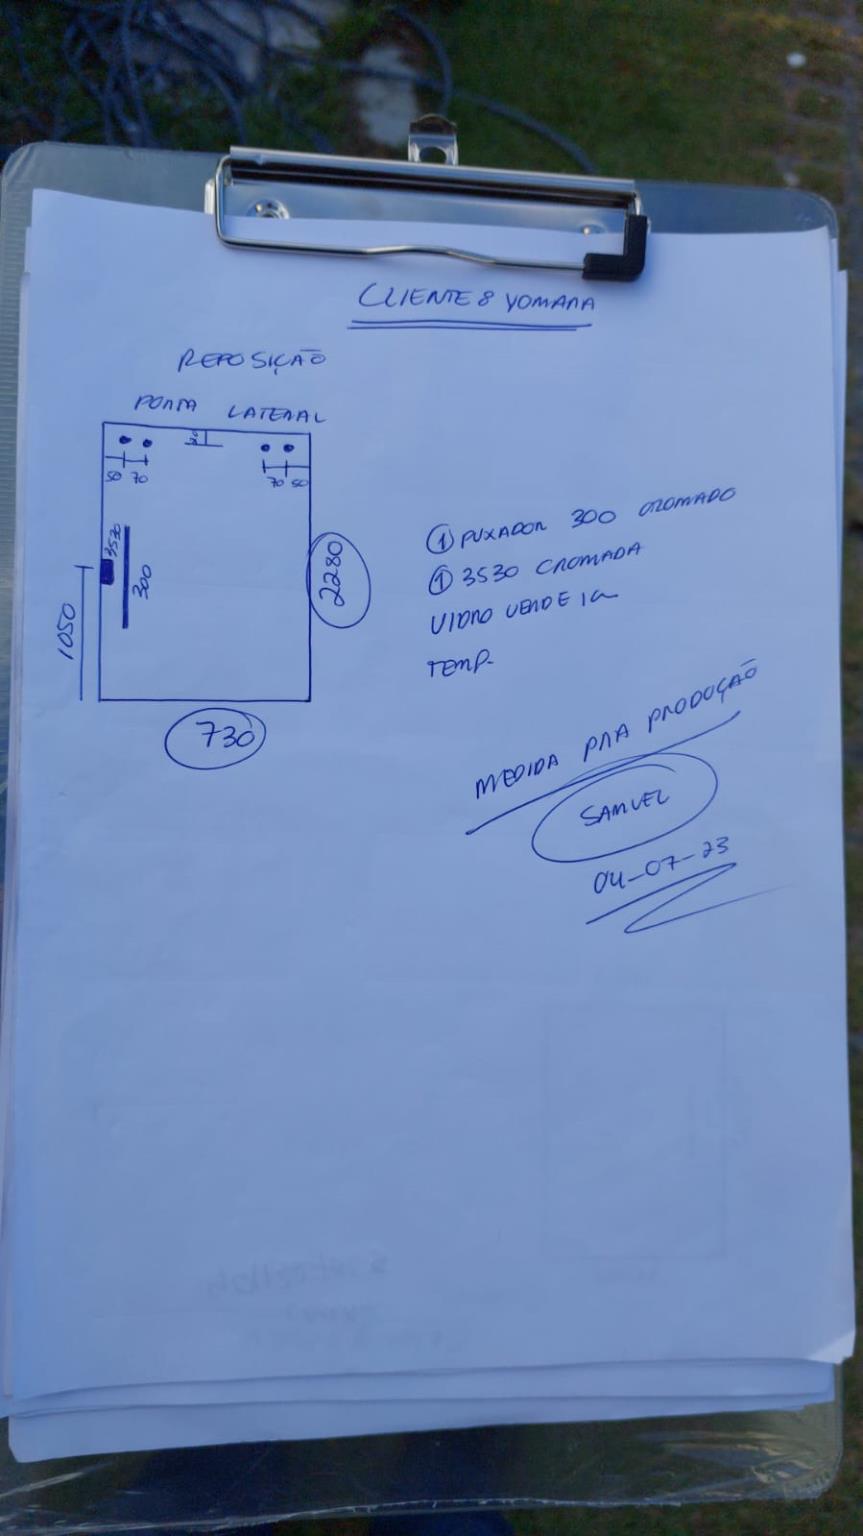 CLIENTE8 YOMARA
REPOSIÇÃO
PORTA LATERAL
50 70
70 50
3530
300
2280
1050
730
① PUXADOR 300 CROMADO
① 3530 CROMADA
VIDRO VERDE
TEMP.
MEDIDA PRA PRODUÇÃO
SAMUEL
04-07-23